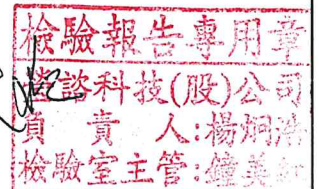 檢驗報告專用章
科技(股)公司
負責人:楊炯浩
檢驗室主管:鐘美